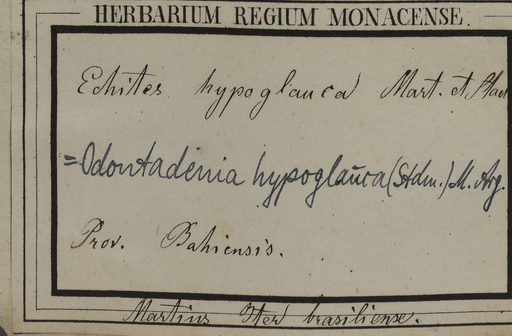 HERBARIUM REGIUM MONACENSE.
Echites hypoglauca Mart. et
=Odontadenia hypoglauca (Stdm.) M. Arg.
Prov. Bahiensis.
Martius Iter brasiliense.